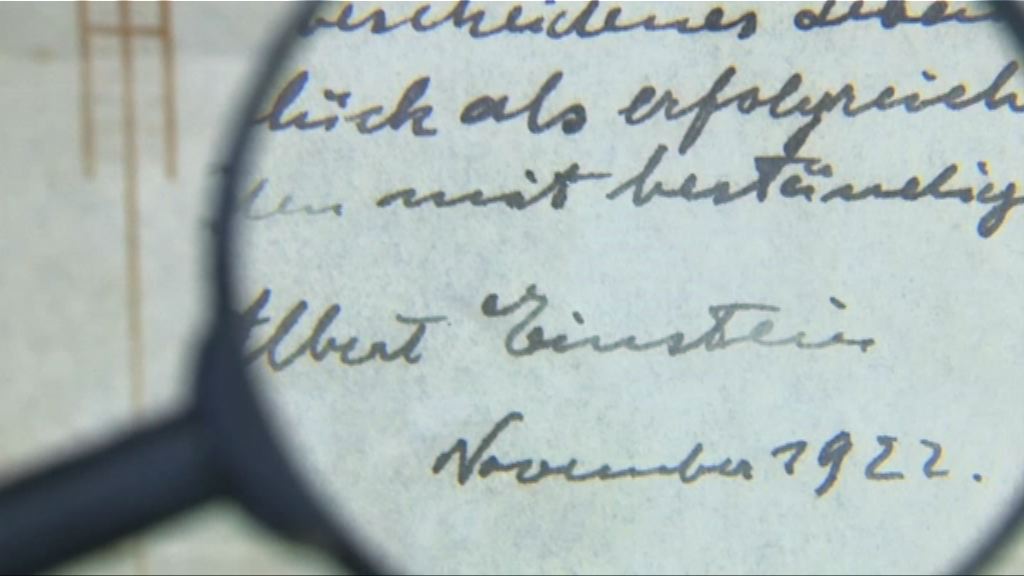 bescheidenes Leben
lück als erfolgreich
den mit beständig
Albert Einstein
November 1922.